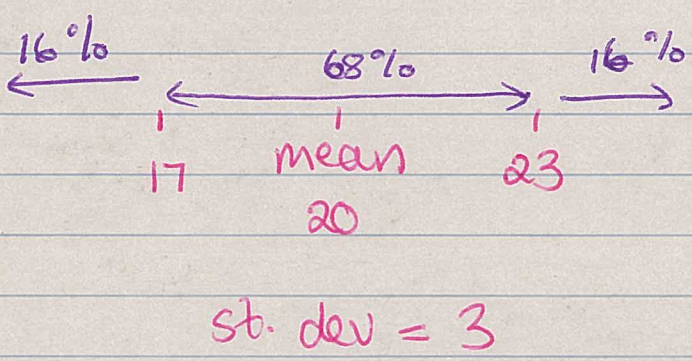 16% 68% 16%
17 mean 23
20
st. dev = 3